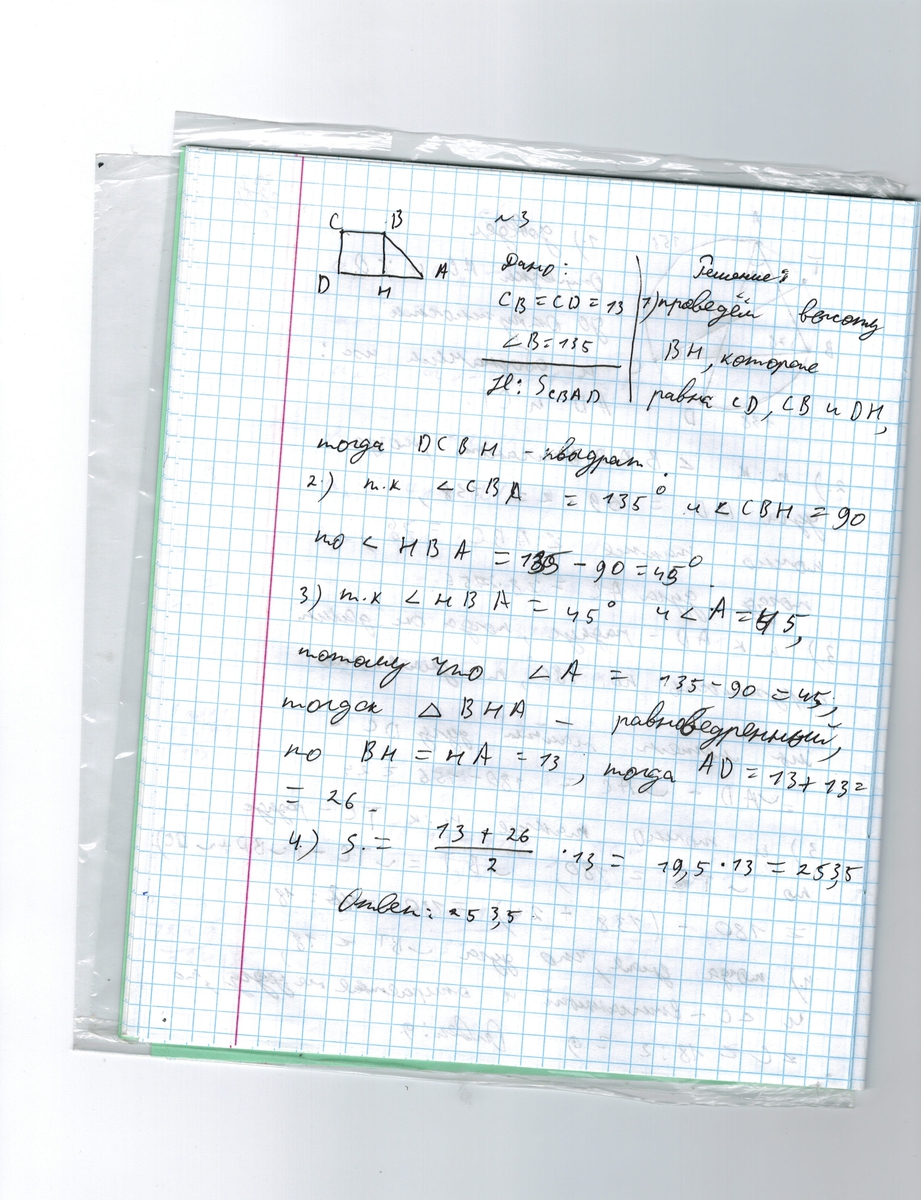 №3
C B
D H A
Дано:
CB = CD = 13
∠B = 135
Н: SCBAD
Решение:
1) проведём высоту
BH, которое
равна CD, CB и DH,
тогда DCBH - квадрат.
2.) т.к ∠CBA = 135° и ∠CBH = 90
то ∠HBA = 135 - 90 = 45°.
3) т.к ∠HBA = 45° и ∠A = 45,
потому что ∠A = 135 - 90 = 45,
тогда △BHA - равнобедренный,
то BH = HA = 13, тогда AD = 13 + 13 =
= 26.
4.) S. = 13 + 26 / 2 · 13 = 19,5 · 13 = 253,5
Ответ: 253,5.